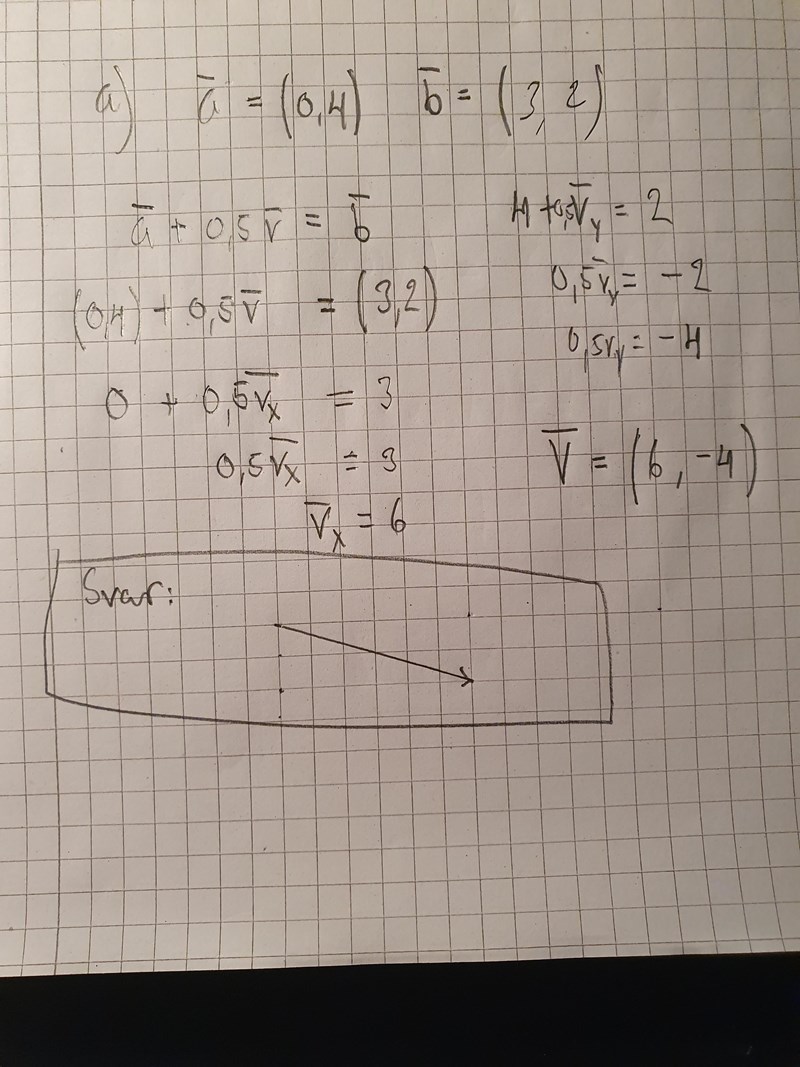 a) a̅ = (0,4) b̅ = (3,2)
a̅ + 0,5v̅ = b̅
(0,4) + 0,5v̅ = (3,2)
0 + 0,5v̅ₓ = 3
0,5v̅ₓ = 3
v̅ₓ = 6
4 + 0,5v̅ᵧ = 2
0,5v̅ᵧ = -2
0,5vᵧ = -4
v̅ = (6, -4)
Svar: